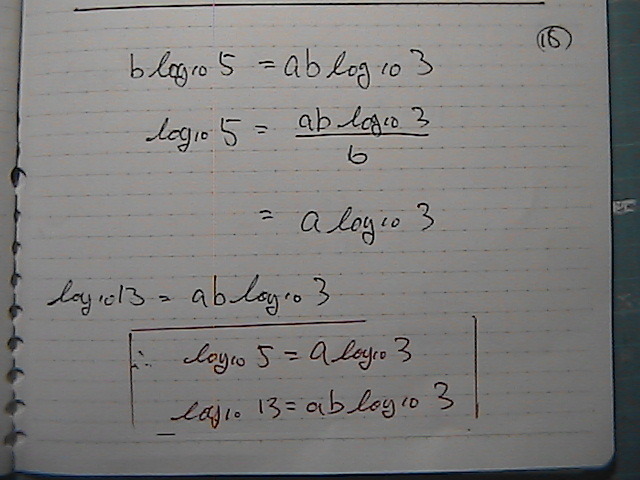 (15)
b log10 5 = ab log10 3
log10 5 = ab log10 3 / b
= a log10 3
log10 13 = ab log10 3
∴ log10 5 = a log10 3
log10 13 = ab log10 3